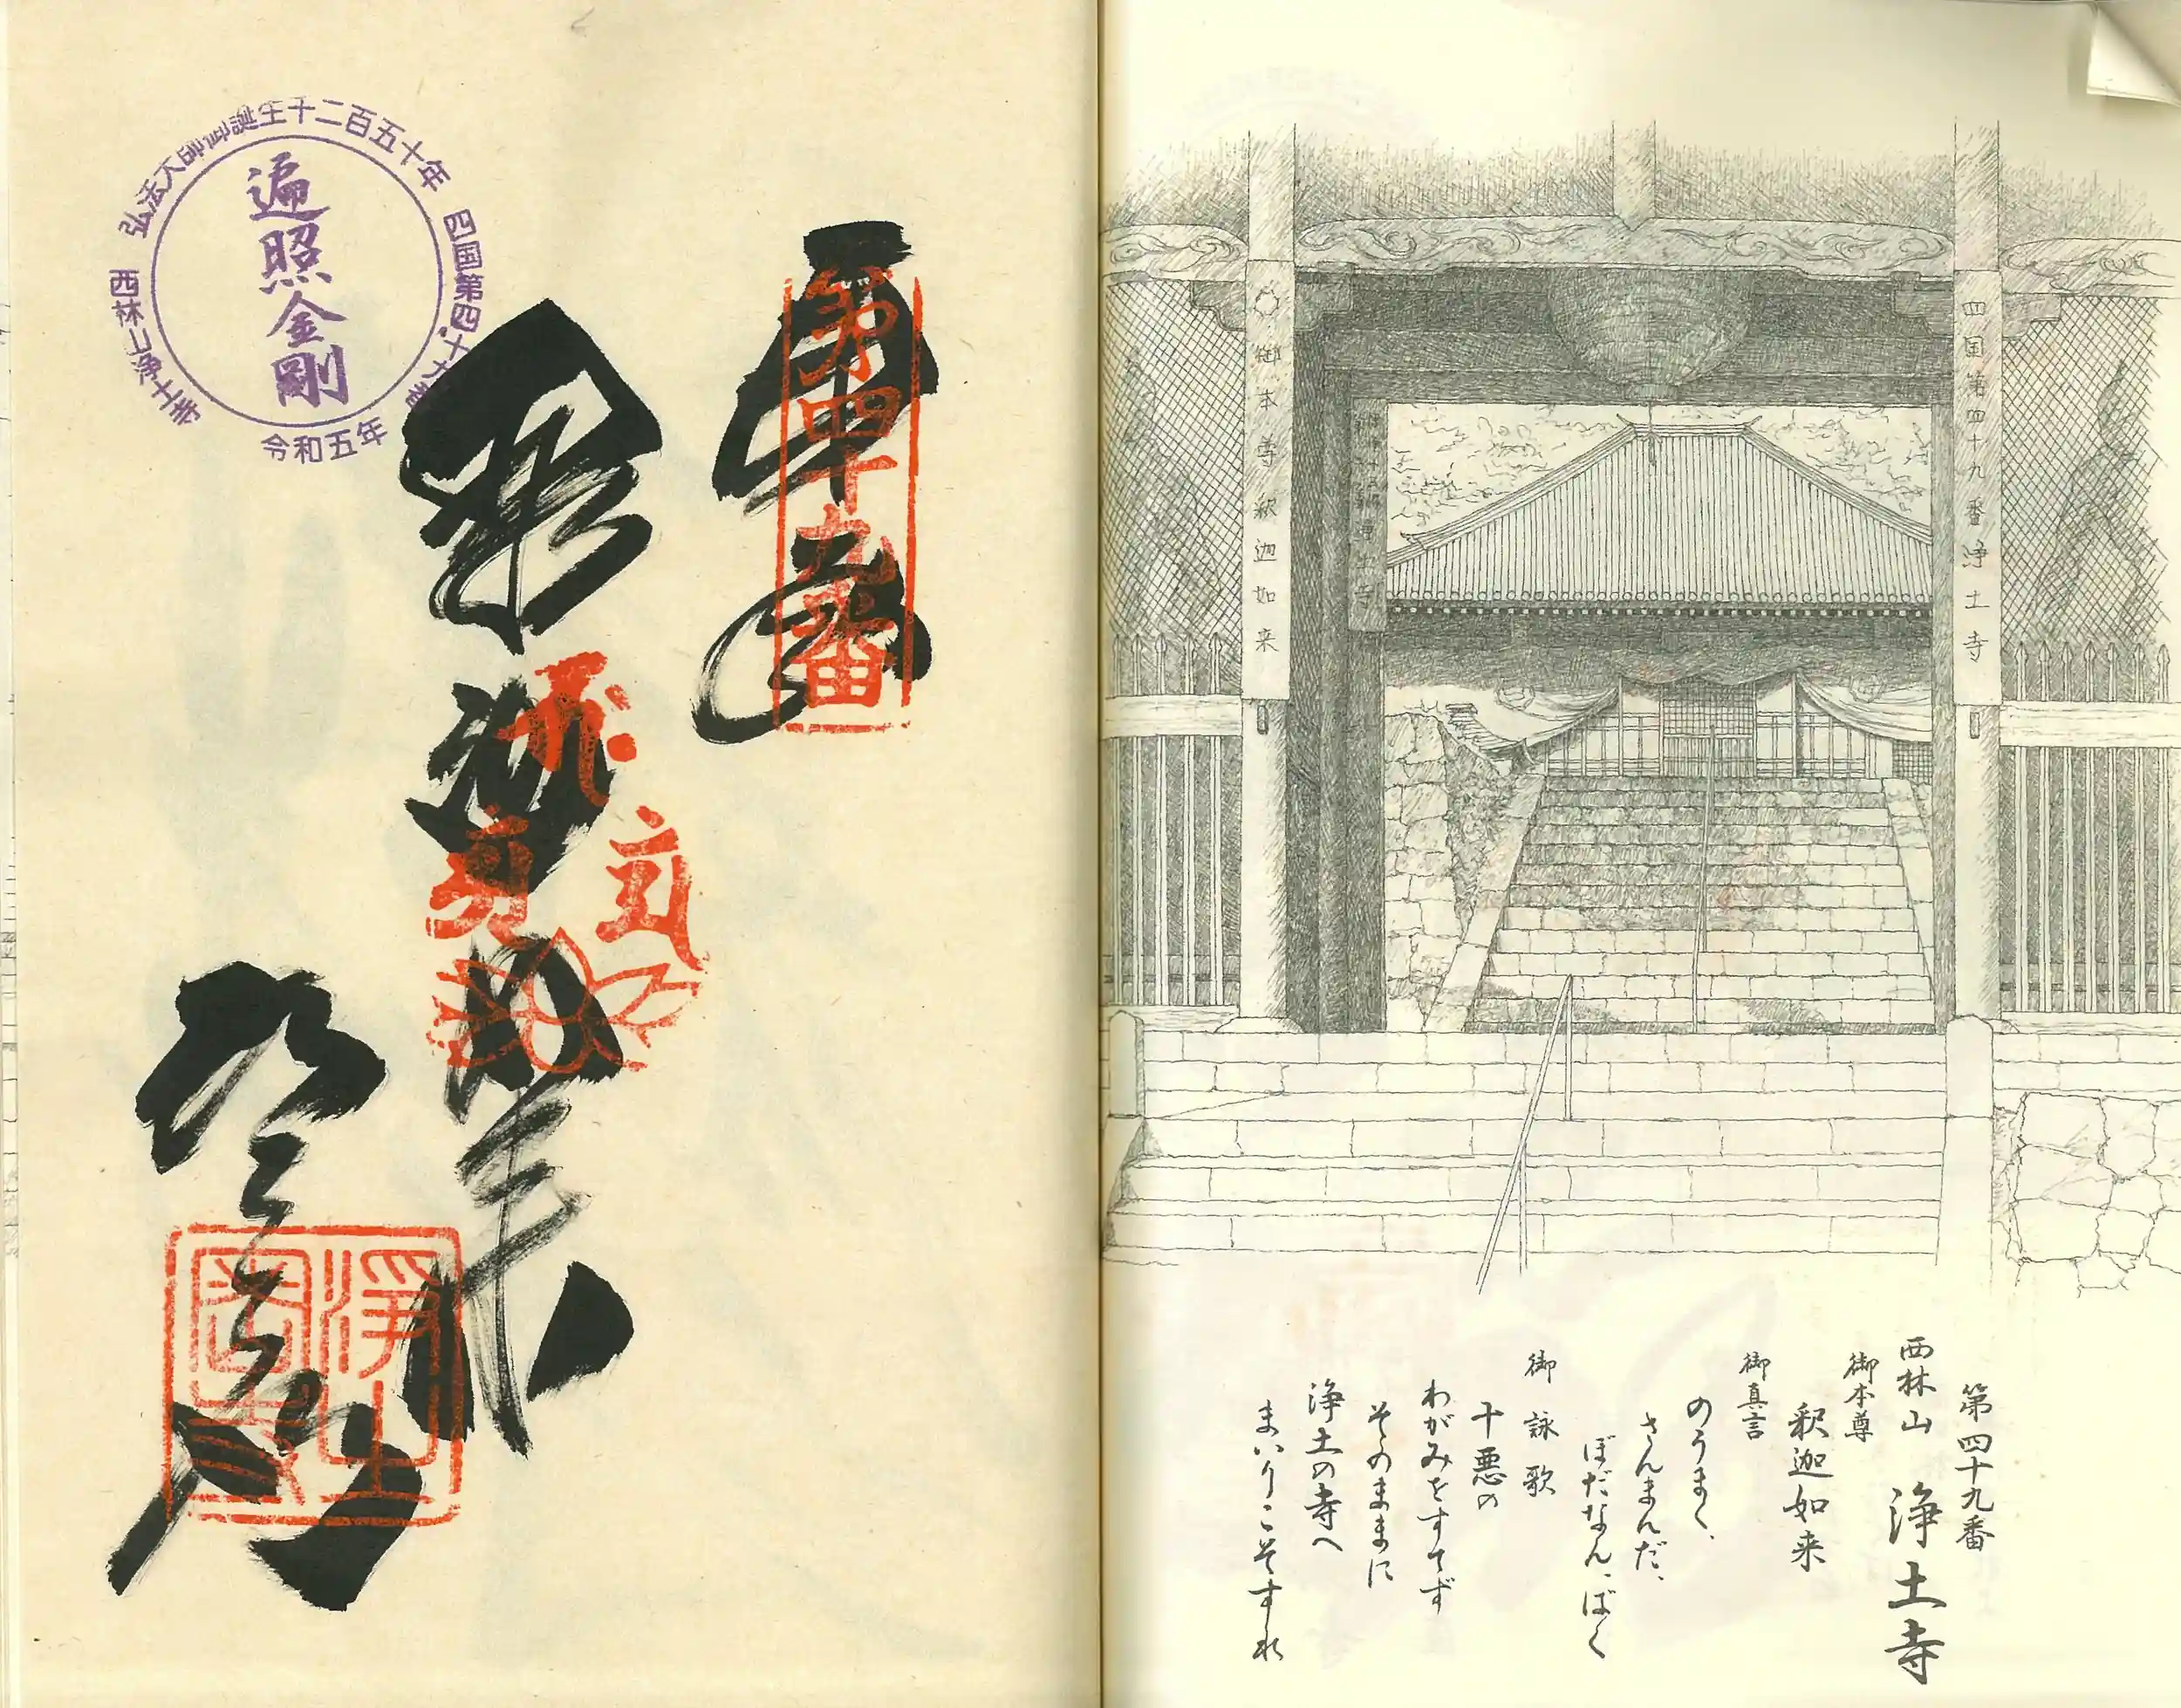 四国第四十九番浄土寺
御本尊釈迦如来
第四十九番
西林山 浄土寺
御本尊
釈迦如来
御真言
のうまく、
さんまんだ、
ぼだなん、ばく
御詠歌
十悪の
わがみをすてず
そのままに
浄土の寺へ
まいりこそすれ
第四十九番
奉
釈迦如来
浄土寺
浄土
弘法大師御誕生千二百五十年
四国第四十九番
遍照金剛
西林山浄土寺
令和五年